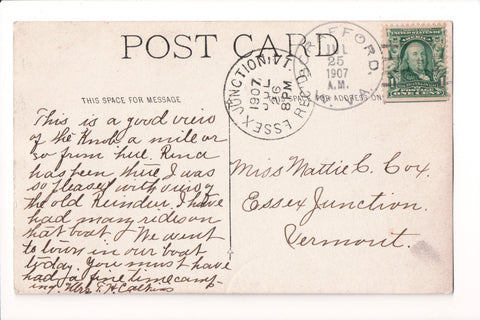 POST CARD
THIS SPACE FOR MESSAGE
SPACE FOR ADDRESS ONLY
ESSEX JUNCTION, VT.
JUL
26
8 PM
1907
REC'D.
FORD,
JUL
25
1907
A.M.
This is a good view
of the Knob a mile or
so from here. Rena
has been there, I was
so pleased with view of
the old Reindeer. I have
had many rides on
that boat. We went
to town in our boat
today. You must have
had a fine time camp-
ing. Mrs E. H.
Miss Mattie C. Cox.
Essex Junction.
Vermont.